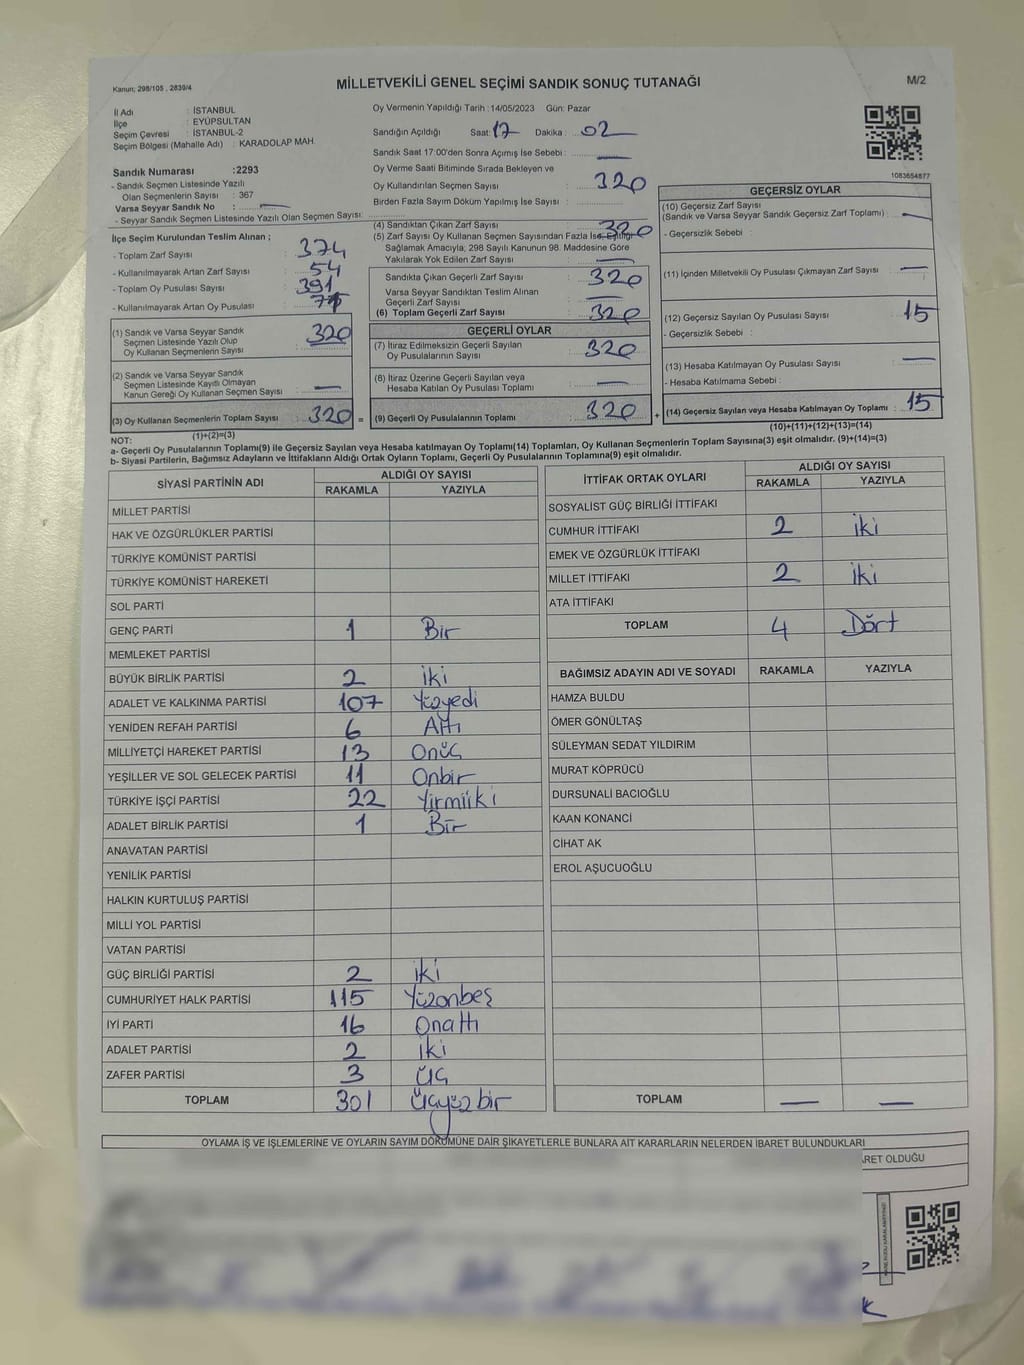 Kanun; 298/105 , 2839/4
MİLLETVEKİLİ GENEL SEÇİMİ SANDIK SONUÇ TUTANAĞI
M/2
İl Adı : İSTANBUL
İlçe : EYÜPSULTAN
Seçim Çevresi : İSTANBUL-2
Seçim Bölgesi (Mahalle Adı) : KARADOLAP MAH.
Sandık Numarası :2293
- Sandık Seçmen Listesinde Yazılı
Olan Seçmenlerin Sayısı : 367
Varsa Seyyar Sandık No : —
- Seyyar Sandık Seçmen Listesinde Yazılı Olan Seçmen Sayısı:
Oy Vermenin Yapıldığı Tarih :14/05/2023 Gün: Pazar
Sandığın Açıldığı Saat: 17 Dakika : 02
Sandık Saat 17:00'den Sonra Açımış İse Sebebi : —
Oy Verme Saati Bitiminde Sırada Bekleyen ve
Oy Kullandırılan Seçmen Sayısı : 320
Birden Fazla Sayım Döküm Yapılmış İse Sayısı :
1083654877
İlçe Seçim Kurulundan Teslim Alınan ;
- Toplam Zarf Sayısı : 374
- Kullanılmayarak Artan Zarf Sayısı : 54
- Toplam Oy Pusulası Sayısı : 391
- Kullanılmayarak Artan Oy Pusulası :
(1) Sandık ve Varsa Seyyar Sandık
Seçmen Listesinde Yazılı Olup
Oy Kullanan Seçmenlerin Sayısı : 320
(2) Sandık ve Varsa Seyyar Sandık
Seçmen Listesinde Kayıtlı Olmayan
Kanun Gereği Oy Kullanan Seçmen Sayısı : —
(3) Oy Kullanan Seçmenlerin Toplam Sayısı : 320 =
(1)+(2)=(3)
(4) Sandıktan Çıkan Zarf Sayısı : 320
(5) Zarf Sayısı Oy Kullanan Seçmen Sayısından Fazla İse, Eşitliği
Sağlamak Amacıyla; 298 Sayılı Kanunun 98. Maddesine Göre
Yakılarak Yok Edilen Zarf Sayısı : —
Sandıkta Çıkan Geçerli Zarf Sayısı : 320
Varsa Seyyar Sandıktan Teslim Alınan
Geçerli Zarf Sayısı : —
(6) Toplam Geçerli Zarf Sayısı : 320
GEÇERLİ OYLAR
(7) İtiraz Edilmeksizin Geçerli Sayılan
Oy Pusulalarının Sayısı : 320
(8) İtiraz Üzerine Geçerli Sayılan veya
Hesaba Katılan Oy Pusulası Toplamı : —
(9) Geçerli Oy Pusulalarının Toplamı : 320 +
GEÇERSİZ OYLAR
(10) Geçersiz Zarf Sayısı
(Sandık ve Varsa Seyyar Sandık Geçersiz Zarf Toplamı) : —
- Geçersizlik Sebebi :
(11) İçinden Milletvekili Oy Pusulası Çıkmayan Zarf Sayısı : —
(12) Geçersiz Sayılan Oy Pusulası Sayısı : 15
- Geçersizlik Sebebi :
(13) Hesaba Katılmayan Oy Pusulası Sayısı : —
- Hesaba Katılmama Sebebi :
(14) Geçersiz Sayılan veya Hesaba Katılmayan Oy Toplamı : 15
(10)+(11)+(12)+(13)=(14)
NOT:
a- Geçerli Oy Pusulalarının Toplamı(9) ile Geçersiz Sayılan veya Hesaba katılmayan Oy Toplamı(14) Toplamları, Oy Kullanan Seçmenlerin Toplam Sayısına(3) eşit olmalıdır. (9)+(14)=(3)
b- Siyasi Partilerin, Bağımsız Adayların ve İttifakların Aldığı Ortak Oyların Toplamı, Geçerli Oy Pusulalarının Toplamına(9) eşit olmalıdır.
SİYASİ PARTİNİN ADI
ALDIĞI OY SAYISI
RAKAMLA YAZIYLA
MİLLET PARTİSİ
HAK VE ÖZGÜRLÜKLER PARTİSİ
TÜRKİYE KOMÜNİST PARTİSİ
TÜRKİYE KOMÜNİST HAREKETİ
SOL PARTİ
GENÇ PARTİ 1 Bir
MEMLEKET PARTİSİ
BÜYÜK BİRLİK PARTİSİ 2 iki
ADALET VE KALKINMA PARTİSİ 107 Yüzyedi
YENİDEN REFAH PARTİSİ 6 Altı
MİLLİYETÇİ HAREKET PARTİSİ 13 Onüç
YEŞİLLER VE SOL GELECEK PARTİSİ 11 Onbir
TÜRKİYE İŞÇİ PARTİSİ 22 Yirmiiki
ADALET BİRLİK PARTİSİ 1 Bir
ANAVATAN PARTİSİ
YENİLİK PARTİSİ
HALKIN KURTULUŞ PARTİSİ
MİLLİ YOL PARTİSİ
VATAN PARTİSİ
GÜÇ BİRLİĞİ PARTİSİ 2 iki
CUMHURİYET HALK PARTİSİ 115 Yüzonbeş
İYİ PARTİ 16 Onaltı
ADALET PARTİSİ 2 iki
ZAFER PARTİSİ 3 üç
TOPLAM 301 üçyüzbir
İTTİFAK ORTAK OYLARI
ALDIĞI OY SAYISI
RAKAMLA YAZIYLA
SOSYALİST GÜÇ BİRLİĞİ İTTİFAKI
CUMHUR İTTİFAKI 2 iki
EMEK VE ÖZGÜRLÜK İTTİFAKI
MİLLET İTTİFAKI 2 iki
ATA İTTİFAKI
TOPLAM 4 Dört
BAĞIMSIZ ADAYIN ADI VE SOYADI RAKAMLA YAZIYLA
HAMZA BULDU
ÖMER GÖNÜLTAŞ
SÜLEYMAN SEDAT YILDIRIM
MURAT KÖPRÜCÜ
DURSUNALİ BACIOĞLU
KAAN KONANCİ
CİHAT AK
EROL AŞUCUOĞLU
TOPLAM — —
OYLAMA İŞ VE İŞLEMLERİNE VE OYLARIN SAYIM DÖKÜMÜNE DAİR ŞİKAYETLERLE BUNLARA AİT KARARLARIN NELERDEN İBARET BULUNDUKLARI
RET OLDUĞU